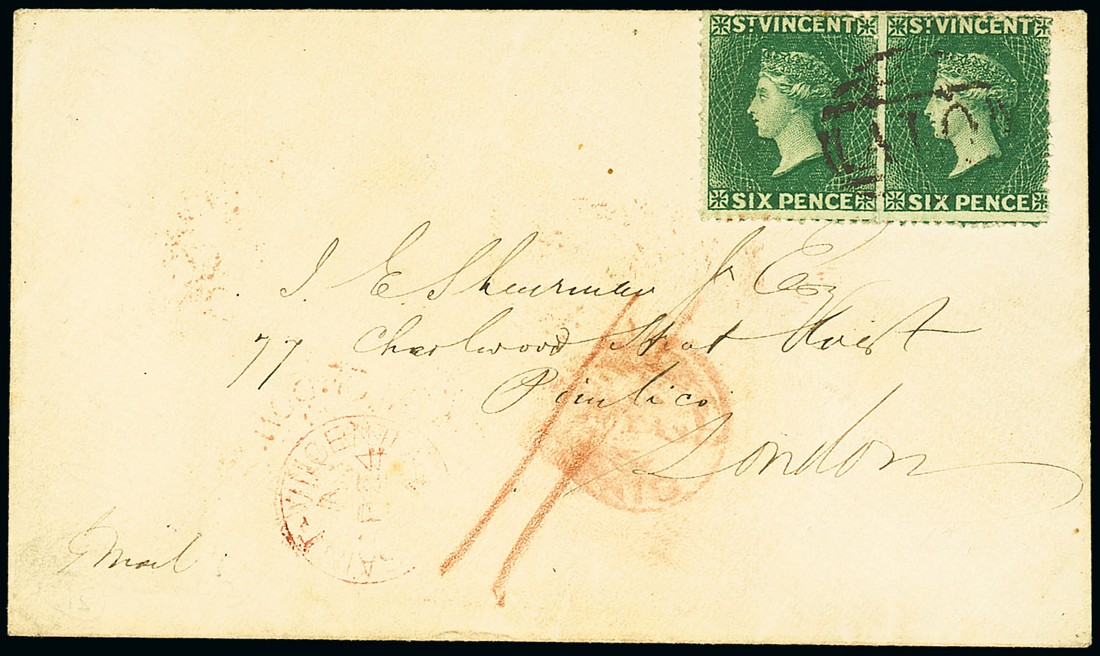 ST VINCENT ST VINCENT
SIX PENCE SIX PENCE
J. E. Jr Esq
77 Charlwood Street West
Pimlico
London
Mail